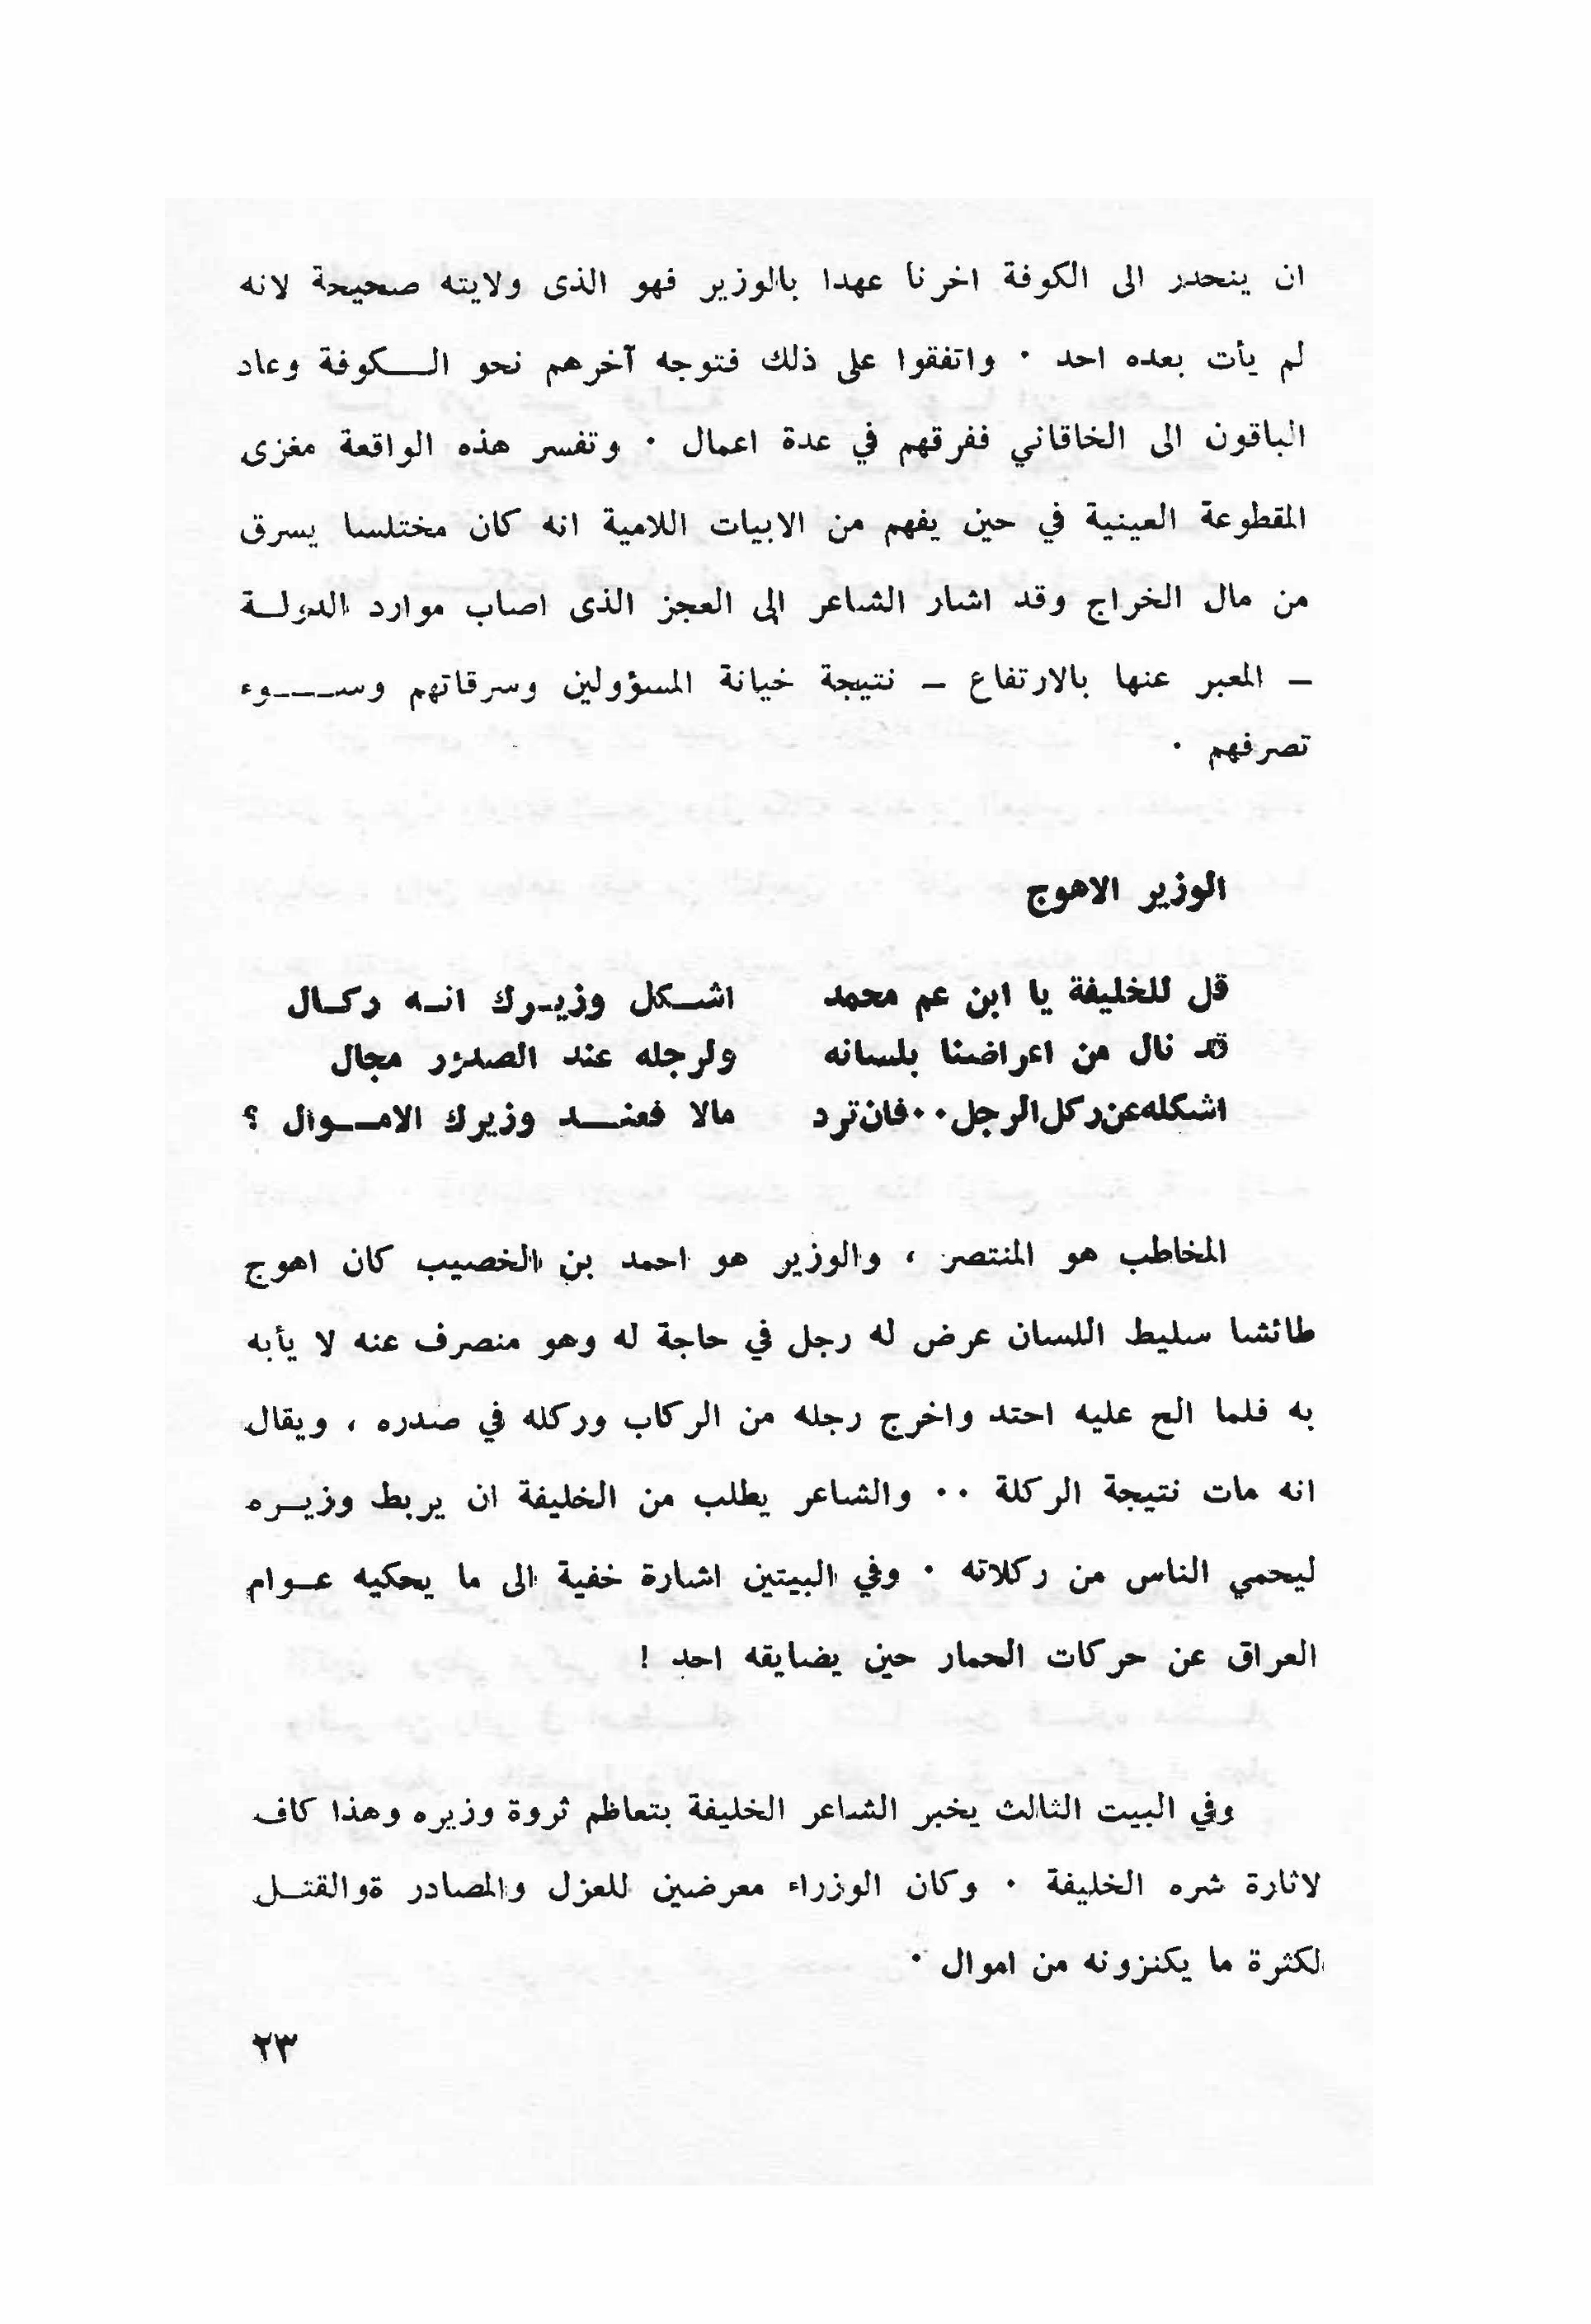 ان ينحدر الى الكوفة اخرنا عهدا بالوزير فهو الذى ولايته صحيحة لانه
لم يأت بعده احد ٠ واتفقوا على ذلك فتوجه آخرهم نحو الـــكوفة وعاد
الباقون الى الخاقاني ففرقهم في عدة اعمال ٠ وتفسر هذه الواقعة مغزى
المقطوعة العينية في حين يفهم من الابيات اللامية انه كان مختلسا يسرق
من مال الخراج وقد اشار الشاعر الى العجز الذى اصاب موارد الدولـة
ـ المعبر عنها بالارتفاع ـ نتيجة خيانة المسؤولين وسرقاتهم وســـوء
تصرفهم ٠
الوزير الاهوج
قل للخليفة يا ابن عم محمد اشـكل وزيـرك انـه ركـال
قد نال من اعراضنا بلسانه ولرجله عند الصدور مجال
اشكله عن ركل الرجل ٠٠ فان ترد مالا فعنــد وزيرك الامــوال ؟
المخاطب هو المنتصر ، والوزير هو احمد بن الخصيب كان اهوج
طائشا سليط اللسان عرض له رجل في حاجة له وهو منصرف عنه لا يأبه
به فلما الح عليه احتد واخرج رجله من الركاب وركله في صدره ، ويقال
انه مات نتيجة الركلة ٠٠ والشاعر يطلب من الخليفة ان يربط وزيـره
ليحمي الناس من ركلاته ٠ وفي البيتين اشارة خفية الى ما يحكيه عـوام
العراق عن حركات الحمار حين يضايقه احد !
وفي البيت الثالث يخبر الشاعر الخليفة بتعاظم ثروة وزيره وهذا كاف
لاثارة شره الخليفة ٠ وكان الوزراء معرضين للعزل والمصادر ةوالقتـل
لكثرة ما يكنزونه من اموال ٠
٢٣